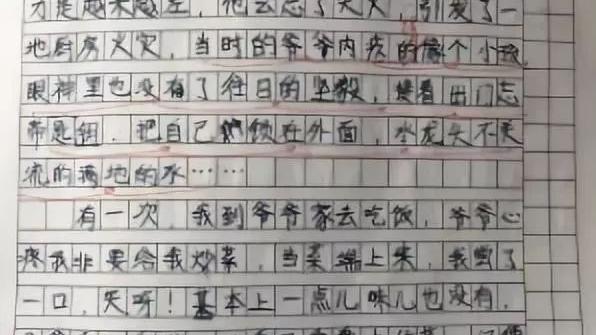 才是越来越差，他会忘了关火，引发了一
地厨房火灾，当时的爷爷内疚的像个小孩
眼神里也没有了往日的坚毅，接着出门忘
带匙钥，把自己锁在外面，水龙头不关
流的满地的水……
有一次，我到爷爷家去吃饭，爷爷心
疼我非要给我炒菜，当菜端上来，我尝了
一口，天呀！基本上一点儿味儿也没有，